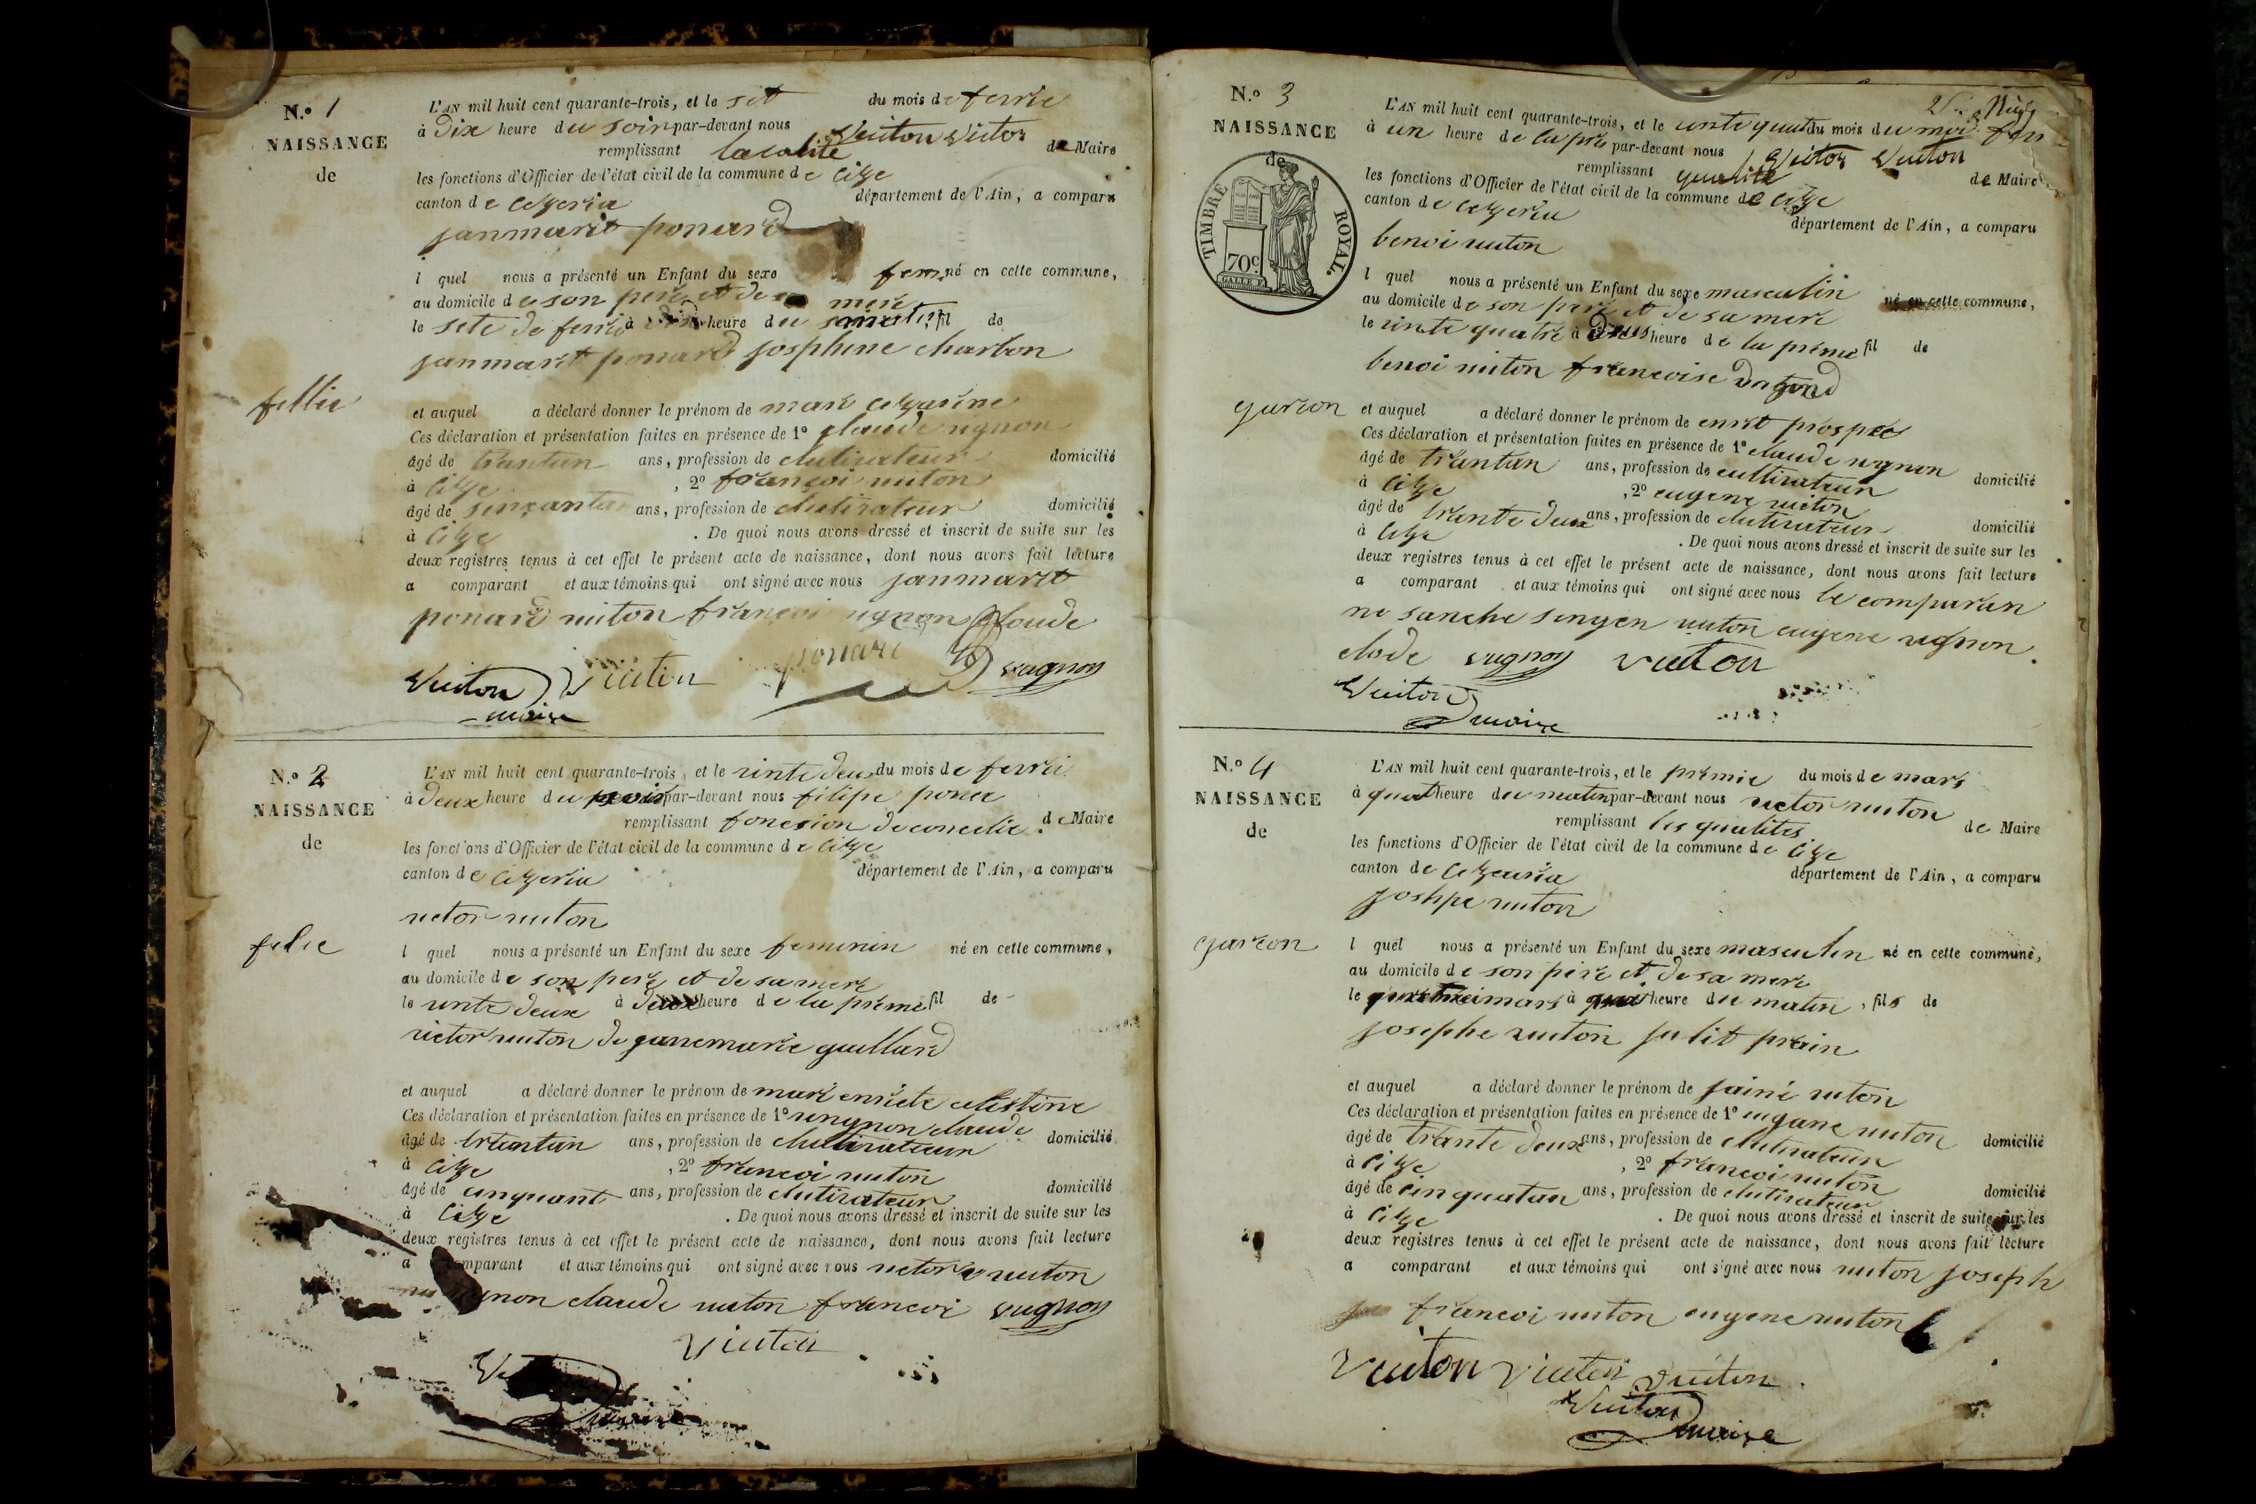 N.º 1
NAISSANCE
de
L'AN mil huit cent quarante-trois, et le set du mois de ferrie
à Dix heure du soir par-devant nous Vuiton Victor
remplissant laealité de Maire
les fonctions d'Officier de l'état civil de la commune de Cize
canton de Cezeria département de l'Ain, a comparu
janmarit ponard
l quel nous a présenté un Enfant du sexe fem né en cette commune,
au domicile de son pere et de sa mere
le sete de ferrie à heure du matin, fil de
janmarit ponard josphine charbon
fellie
et auquel a déclaré donner le prénom de mari cezarine
Ces déclaration et présentation faites en présence de 1º claude ugnon
âgé de trantan ans, profession de clutivateur domicilié
à Cize, 2º françoi uuton
âgé de sinquantan ans, profession de clutivateur domicilié
à Cize. De quoi nous avons dressé et inscrit de suite sur les
deux registres tenus à cet effet le présent acte de naissance, dont nous avons fait lecture
a comparant et aux témoins qui ont signé avec nous janmarit
ponard uuton françoi ugnon Cloude
Vuiton Viuton ponard vugnon
maire
N.º 2
NAISSANCE
de
L'AN mil huit cent quarante-trois, et le vinte deu du mois de ferrei
à Deux heure du soir par-devant nous filipe ponar
remplissant fonesion deconcelie de Maire
les fonctions d'Officier de l'état civil de la commune de Cize
canton de Cezeria département de l'Ain, a comparu
uctor uuton
felie
l quel nous a présenté un Enfant du sexe feminin né en cette commune,
au domicile de son pere et de sa mere
le vinte deux à deux heure de la préme fil de
victor uuton de janemarie guilland
et auquel a déclaré donner le prénom de mari enriete celistine
Ces déclaration et présentation faites en présence de 1º vugnon claude
âgé de trtantan ans, profession de clutivateur domicilié
à Cize, 2º françoi uuton
âgé de cinquant ans, profession de clutivateur domicilié
à Cize. De quoi nous avons dressé et inscrit de suite sur les
deux registres tenus à cet effet le présent acte de naissance, dont nous avons fait lecture
a comparant et aux témoins qui ont signé avec nous uctor uuton
ugnon claude uuton francoi vugnon
Viuton
maire
N.º 3
NAISSANCE
de
TIMBRE ROYAL
70 c.
L'AN mil huit cent quarante-trois, et le vinte quat du mois du moi fevr
à un heure de la prés par-devant nous Victor Vuiton
remplissant qualité de Maire
les fonctions d'Officier de l'état civil de la commune de Cize
canton de Cezeria département de l'Ain, a comparu
benoi uuton
l quel nous a présenté un Enfant du sexe masculin né en cette commune,
au domicile de son pere et de sa mere
le vinte quatre à Deus heure de la préme fil de
benoi uuton françoise dagond
garcon
et auquel a déclaré donner le prénom de enrit prosper
Ces déclaration et présentation faites en présence de 1º claude ugnon
âgé de trantan ans, profession de cultivateur domicilié
à Cize, 2º eugene uuton
âgé de trante deux ans, profession de clutivateur domicilié
à Cize. De quoi nous avons dressé et inscrit de suite sur les
deux registres tenus à cet effet le présent acte de naissance, dont nous avons fait lecture
a comparant et aux témoins qui ont signé avec nous le comparan
ne sanche singen uuton eugene ugnon
clode vugnon viuton
Vuiton
maire
N.º 4
NAISSANCE
de
L'AN mil huit cent quarante-trois, et le premie du mois de mars
à quat heure du matin par-devant nous victor uuton
remplissant les qualites de Maire
les fonctions d'Officier de l'état civil de la commune de Cize
canton de Cezeria département de l'Ain, a comparu
joshpe uuton
garcon
l quel nous a présenté un Enfant du sexe masculin né en cette commune,
au domicile de son pere et de sa mere
le mars à quat heure du matin, fils de
josephe uuton julit prain
et auquel a déclaré donner le prénom de jaime uuton
Ces déclaration et présentation faites en présence de 1º eugane uuton
âgé de trante deux ans, profession de clutivateur domicilié
à Cize, 2º francoi uuton
âgé de cinquatan ans, profession de clutivateur domicilié
à Cize. De quoi nous avons dressé et inscrit de suite sur les
deux registres tenus à cet effet le présent acte de naissance, dont nous avons fait lecture
a comparant et aux témoins qui ont signé avec nous uuton joseph
francoi uuton eugene uuton
Vuiton Viuton Vuiton
Vuiton
maire